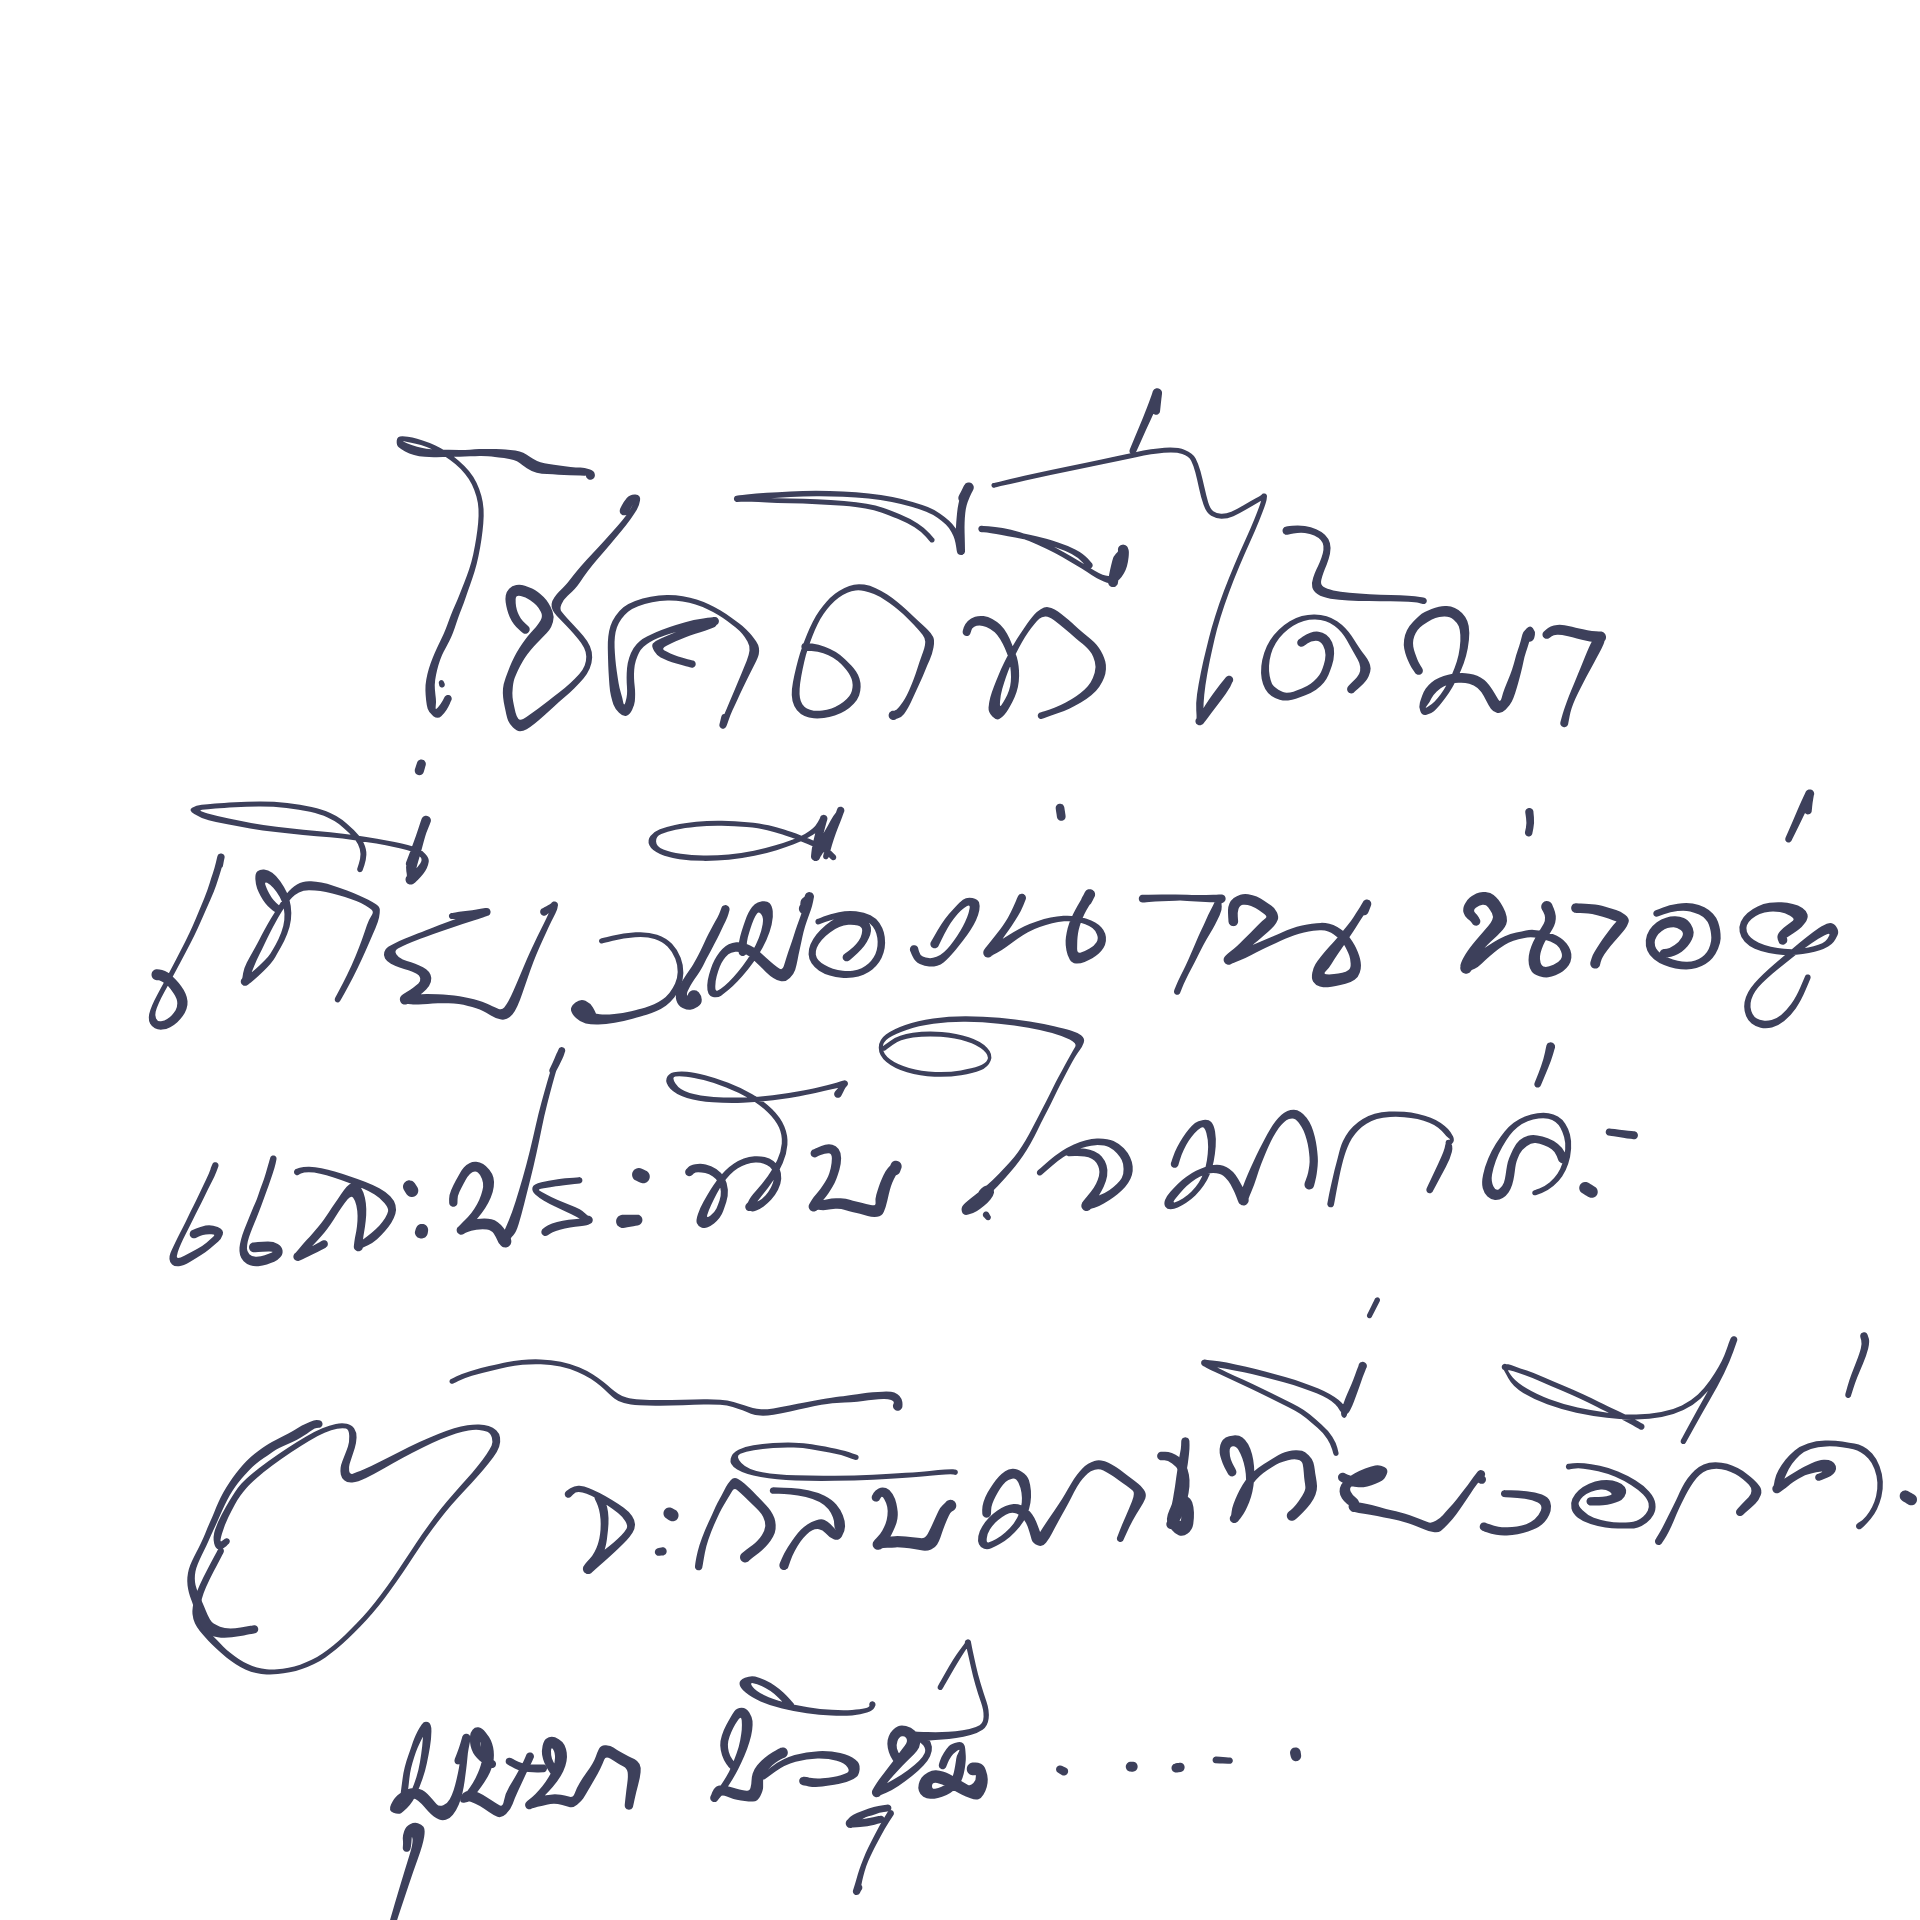 โชคดีที่ได้มา
เที่ยวเมืองน่าน น่าอยู่
และประทับใจมากค่ะ
จะกลับมาเที่ยวอีกค่ะ